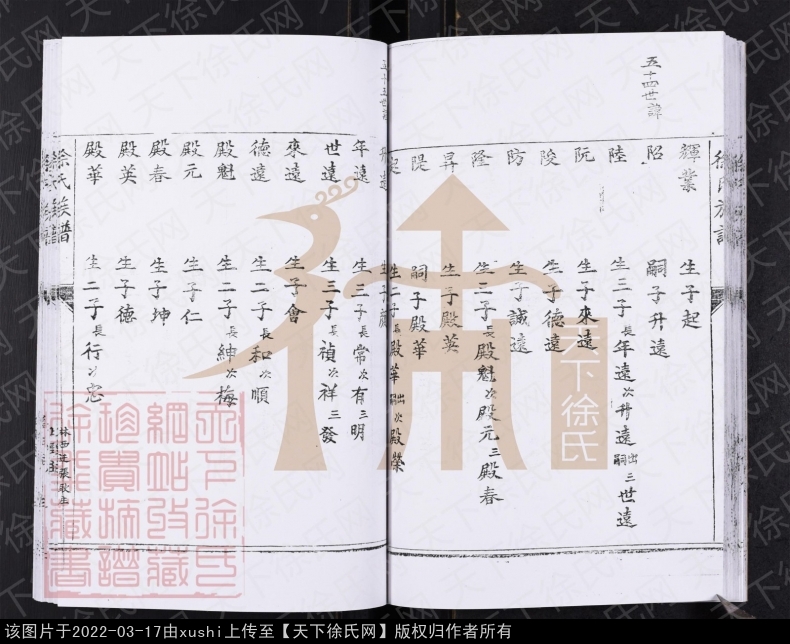 五十四世諱
徐氏族譜
輝業 生子起
昭 嗣子升遠
陸 生三子長年遠次升遠出嗣三世遠
阮 生子來遠
陵 生子德遠
防 生子誠遠
隆 生三子長殿魁次殿元三殿春
昇 生子殿英
隄 嗣子殿華
起 生二子長殿華出嗣次殿榮
五十五世諱
升遠
年遠 生三子長常次有三明
世遠 生三子長禎次祥三發
來遠 生子會
德遠 生二子長和次順
殿魁 生二子長紳次梅
殿元 生子仁
殿春 生子坤
殿英 生子德
殿華 生二子長行次忠
徐氏族譜
天下徐氏
天下徐氏
網站收藏
珍貴摘譜
徐张藏書
该图片于2022-03-17由xushi上传至【天下徐氏网】版权归作者所有